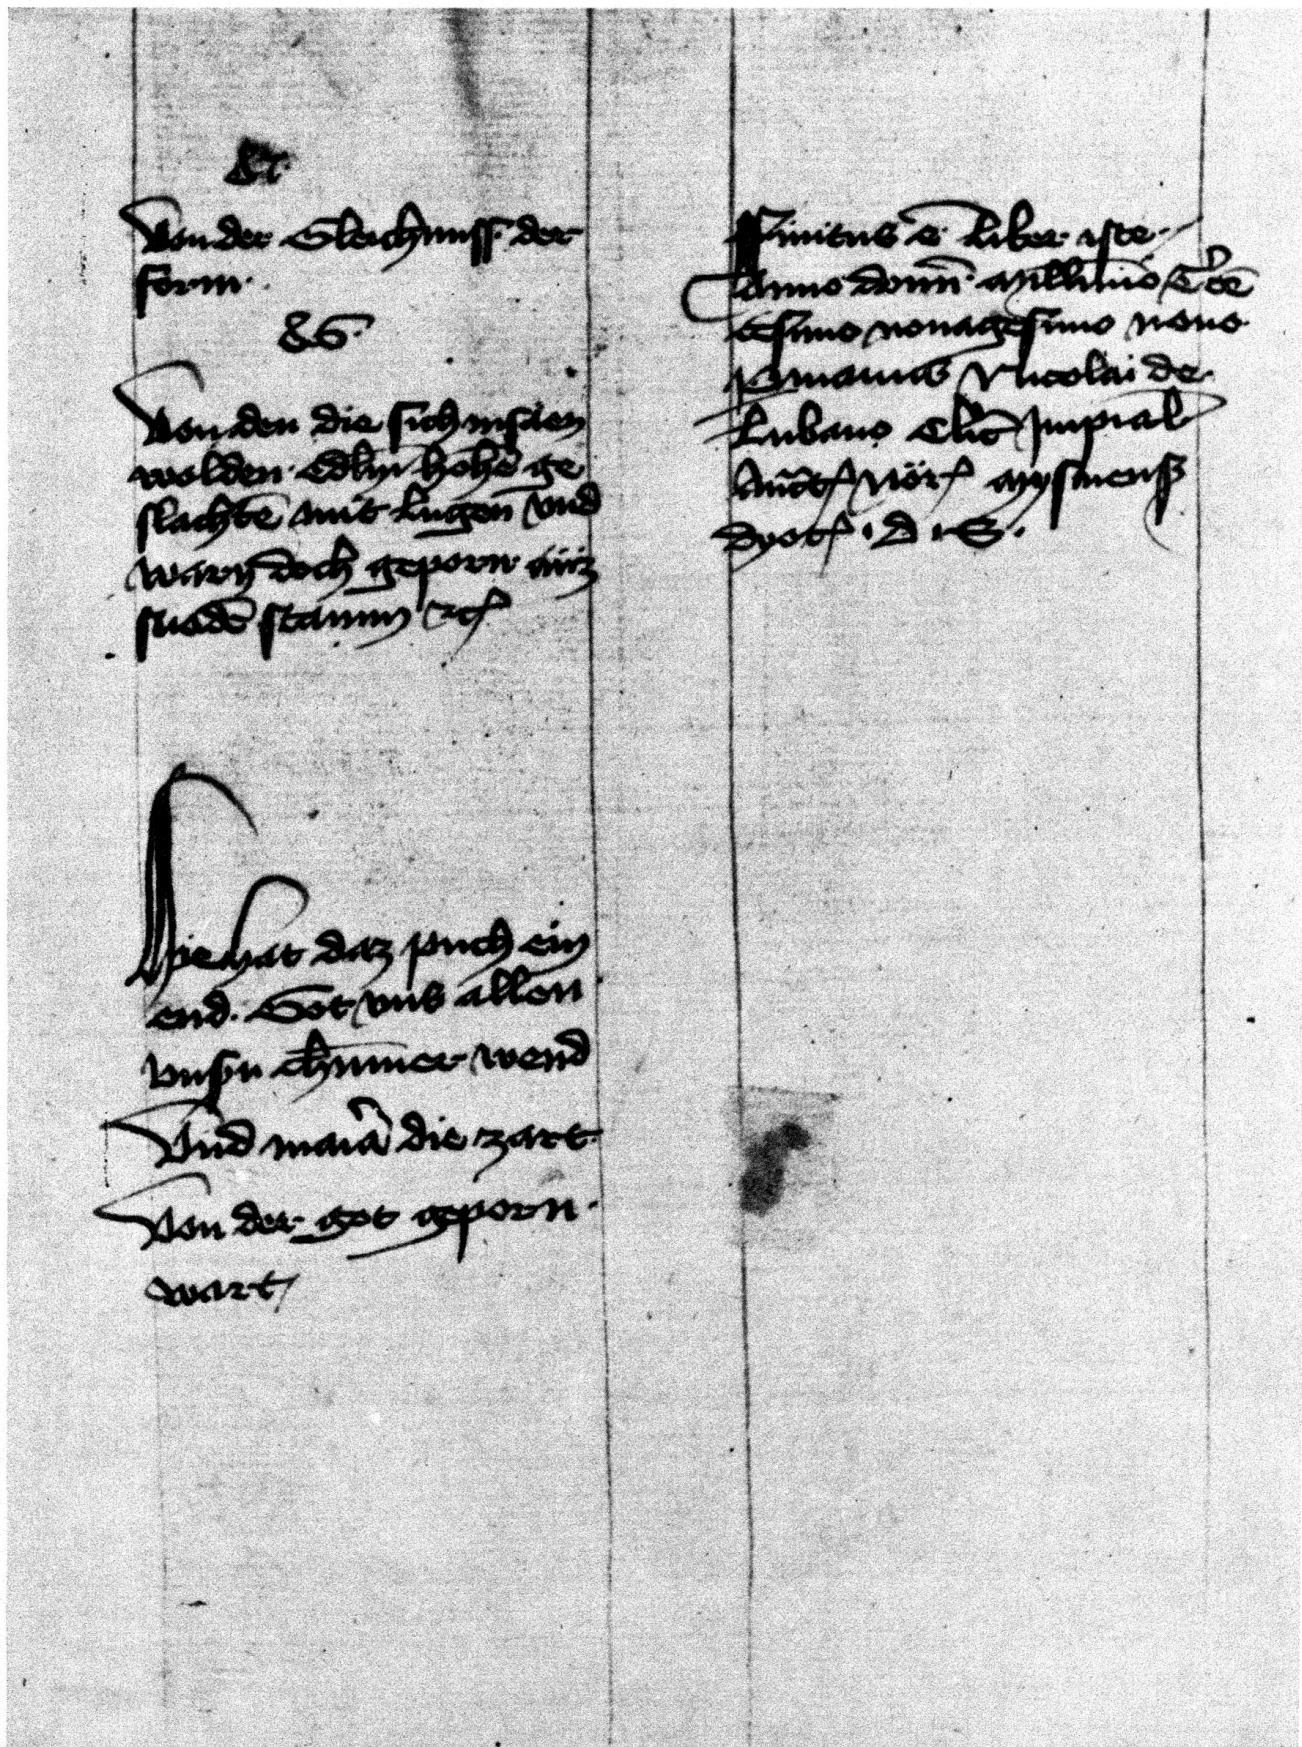 Von der Gleichnuss der
form.
Von den die sich
wolden edlen hohen ge
slachte mit lugen vnd
warn doch geporn auz
snoden stamm etc
Hie hat daz puch ein
end. Got vns allen
vnsern chummer wend
Vnd maria die zart
Von der got geporn
wart
Finitus e Liber iste
Anno domini Millesimo Trecen
tesimo nonagesimo nono
p manus Nicolai de
Lubano Clic Impial
Auctte Notr Mysnens
dyoc